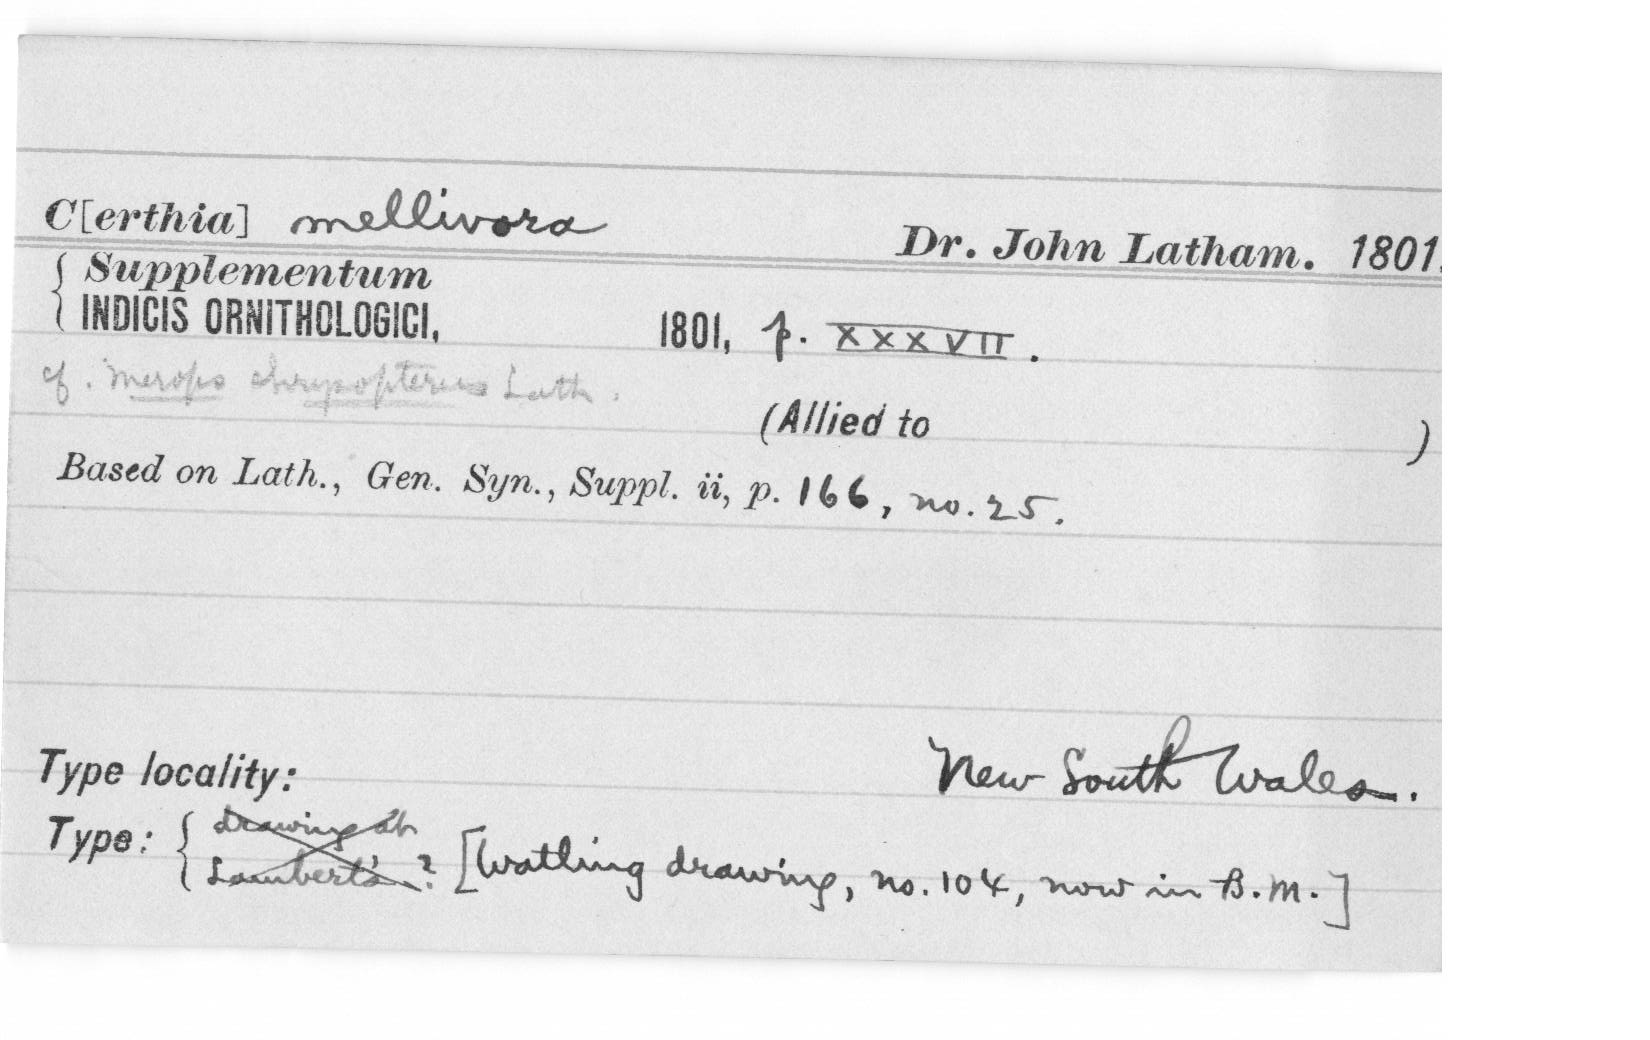 C[erthia] mellivora Dr. John Latham. 1801.
{ Supplementum
INDICIS ORNITHOLOGICI, 1801, p. XXXVII.
cf. Merops chrysopterus Lath.
(Allied to )
Based on Lath., Gen. Syn., Suppl. ii, p. 166, no. 25.
Type locality: New South Wales.
Type: { drawing at
Lambert's ? [Watling drawing, no. 104, now in B.M.]